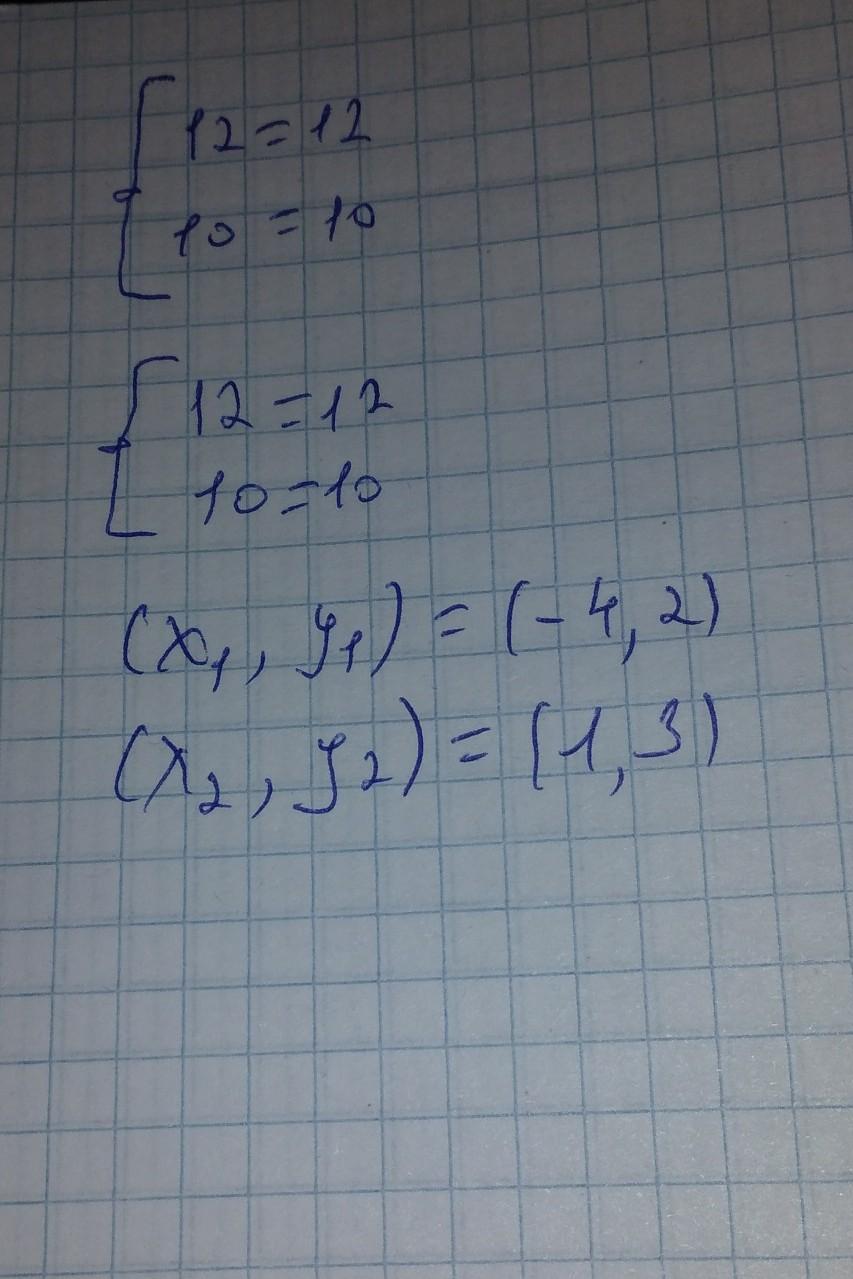 12 = 12
10 = 10
12 = 12
10 = 10
(x₁, y₁) = (-4, 2)
(x₂, y₂) = (1, 3)